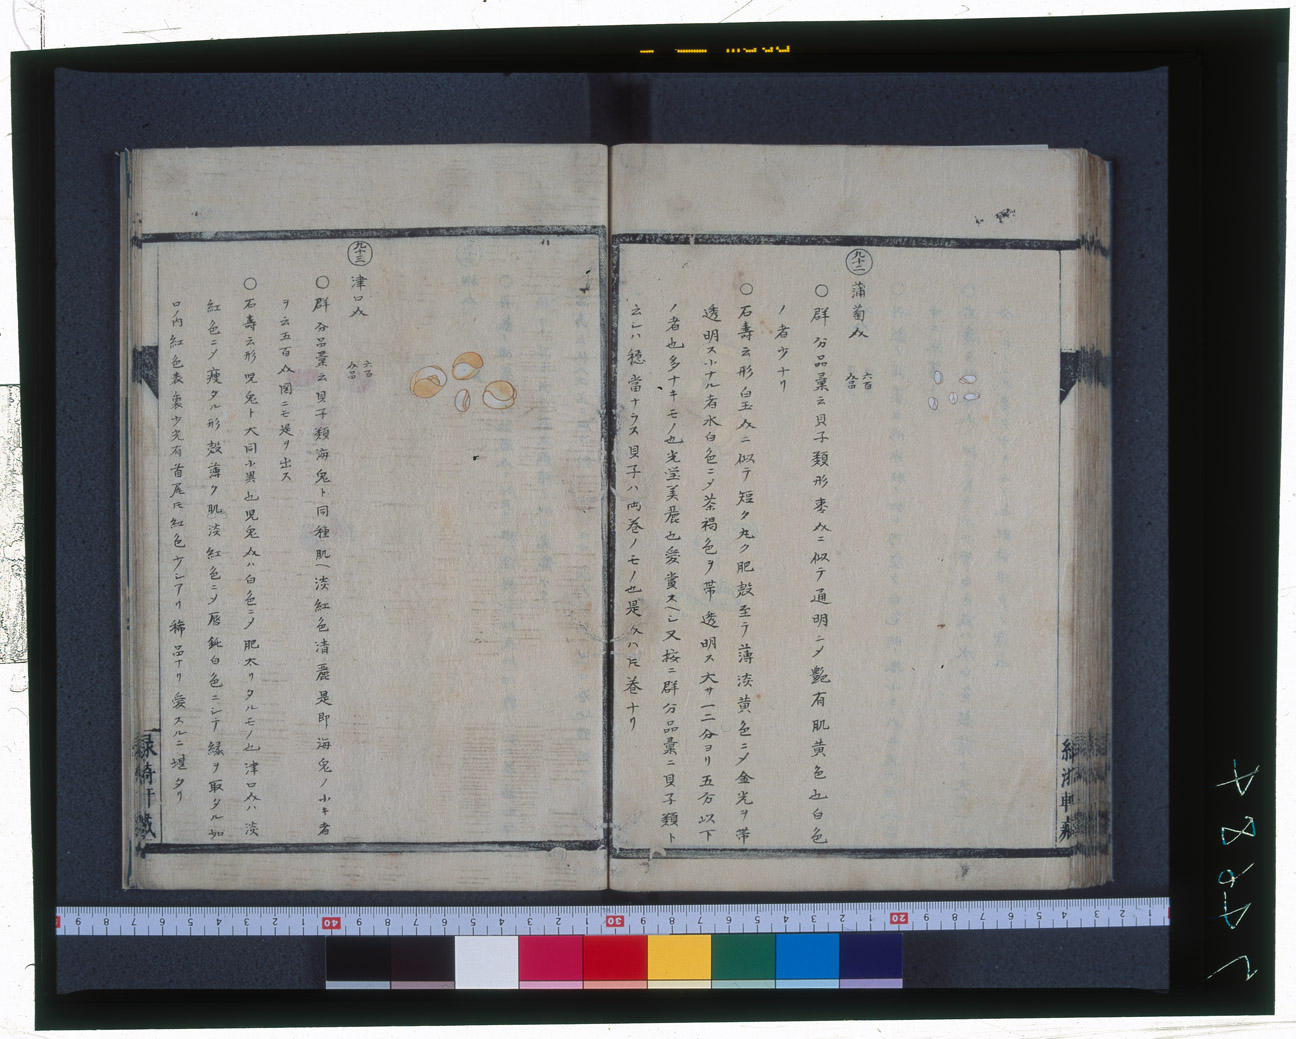 九十二
蒲萄介
六百介品
○群分品彙云貝子類形麦介ニ似テ通明ニメ艶有肌黄色也白色
ノ者少ナリ
○石壽云形白玉介ニ似テ短ク丸ク肥殻至テ薄淡黄色ニメ金光ヲ帯
透明ス小ナル者水白色ニメ茶褐色ヲ帯透明ス大サ一二分ヨリ五分以下
ノ者也多ナキモノ也光瑩美麗也愛賞スヘシ又按ニ群分品彙ニ貝子類ト
云シハ穏當ナラス貝子ハ両巻ノモノ也是介ハ片巻ナリ
九十三
津口介
六百介品
○群分品彙云貝子類海兎ト同種肌ヘ淡紅色清麗是即海兎ノ小キ者
ヲ云五百介図ニモ是ヲ出ス
○石壽云形児兎ト大同小異也児兎介ハ白色ニメ肥太リタルモノ也津口介ハ淡
紅色ニメ痩タル形殻薄ク肌淡紅色ニメ唇純白色ニシテ縁ヲ取タル如
口ノ内紅色表裏少光有首尾片紅色ウシアリ稀品ナリ愛スルニ堪タリ
40
30
20